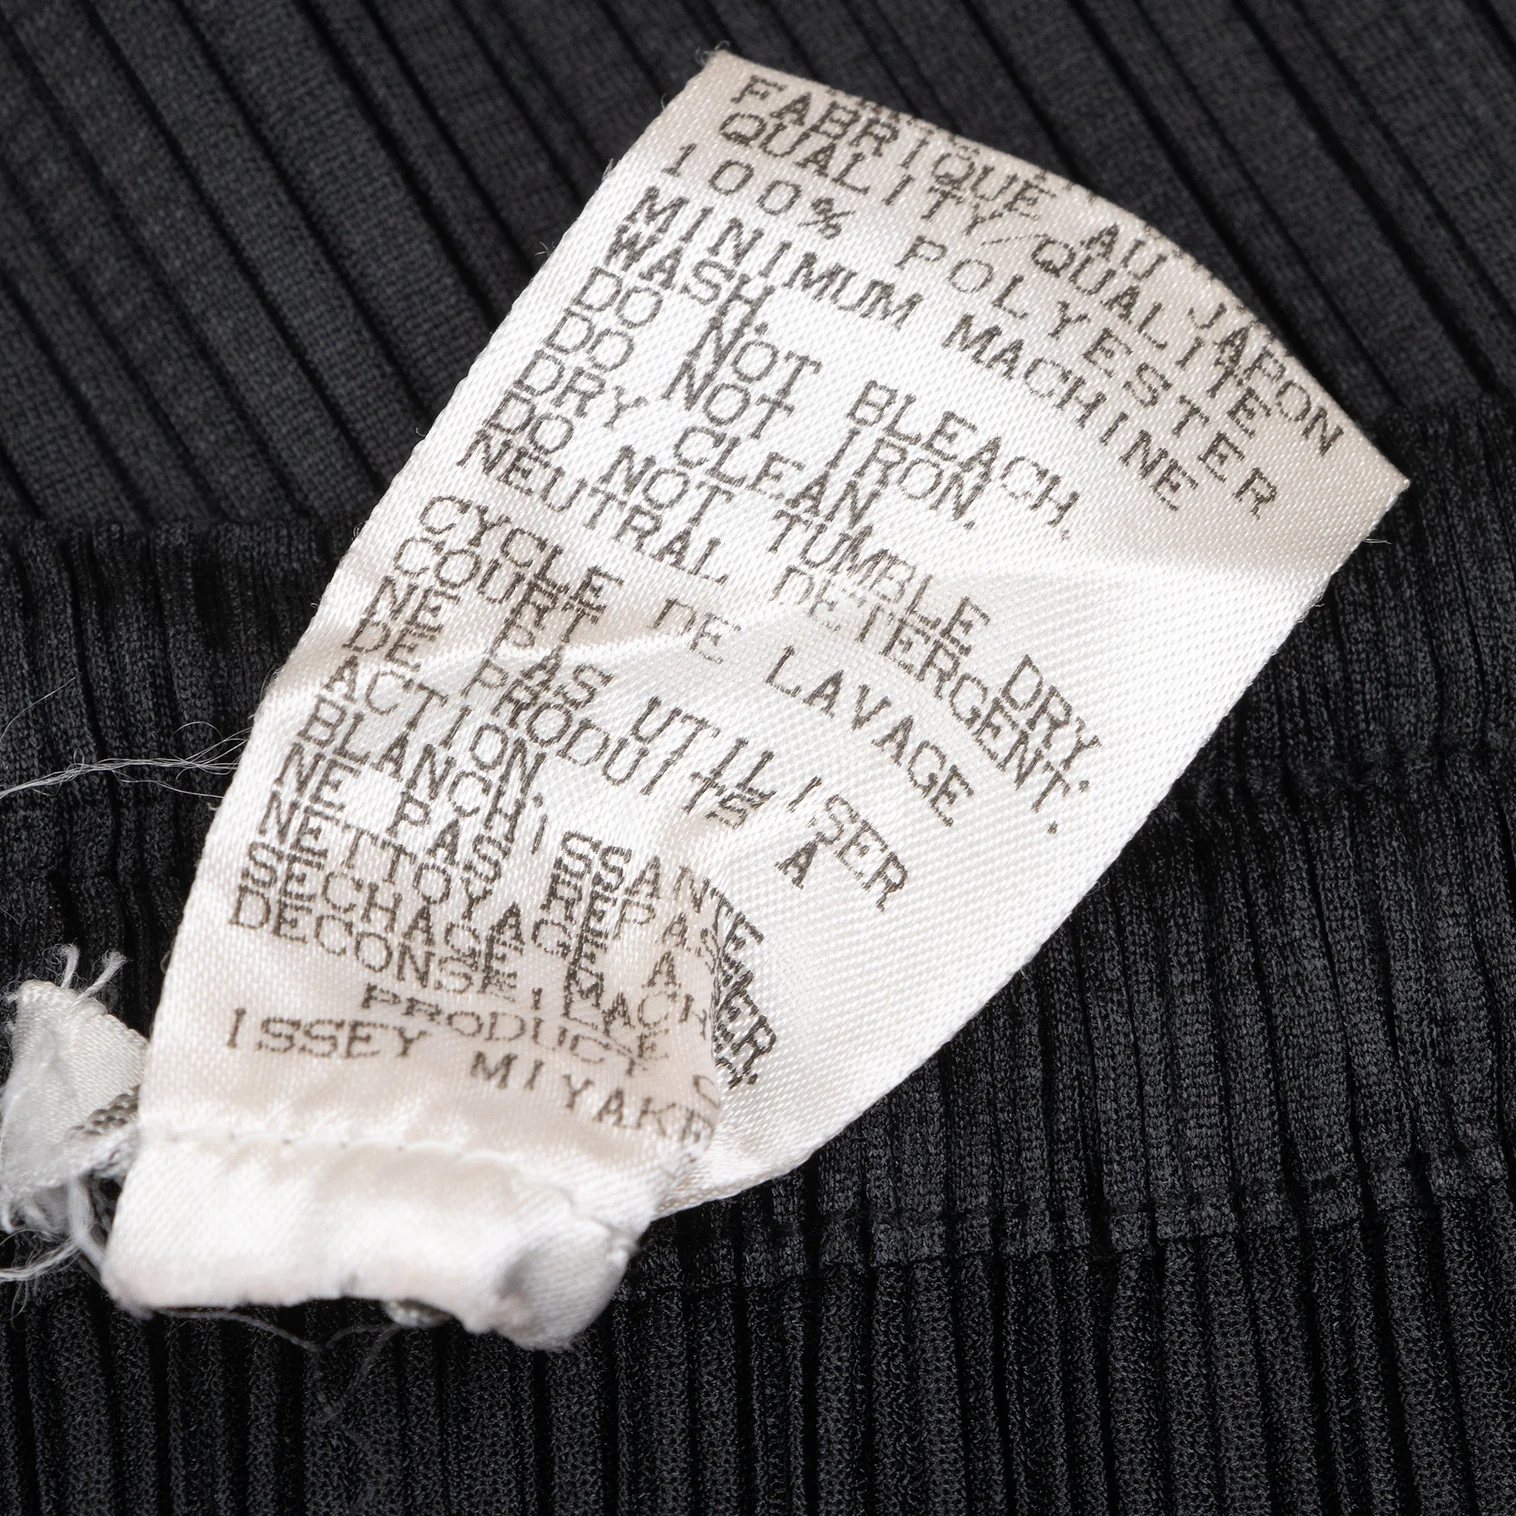 FABRIQUE AU JAPON
QUALITY/QUALITE
100% POLYESTER
MINIMUM MACHINE
WASH.
DO NOT BLEACH.
DO NOT IRON.
DRY CLEAN
DO NOT TUMBLE DRY.
NEUTRAL DETERGENT.
CYCLE DE LAVAGE
COURT
NE PAS UTILISER
DE PRODUITS A
ACTION
BLANCHISSANTE
NE PAS REPASSER
NETTOYAGE A
SECHAGE MACH
DECONSEILLE
PRODUCT
ISSEY MIYAKE